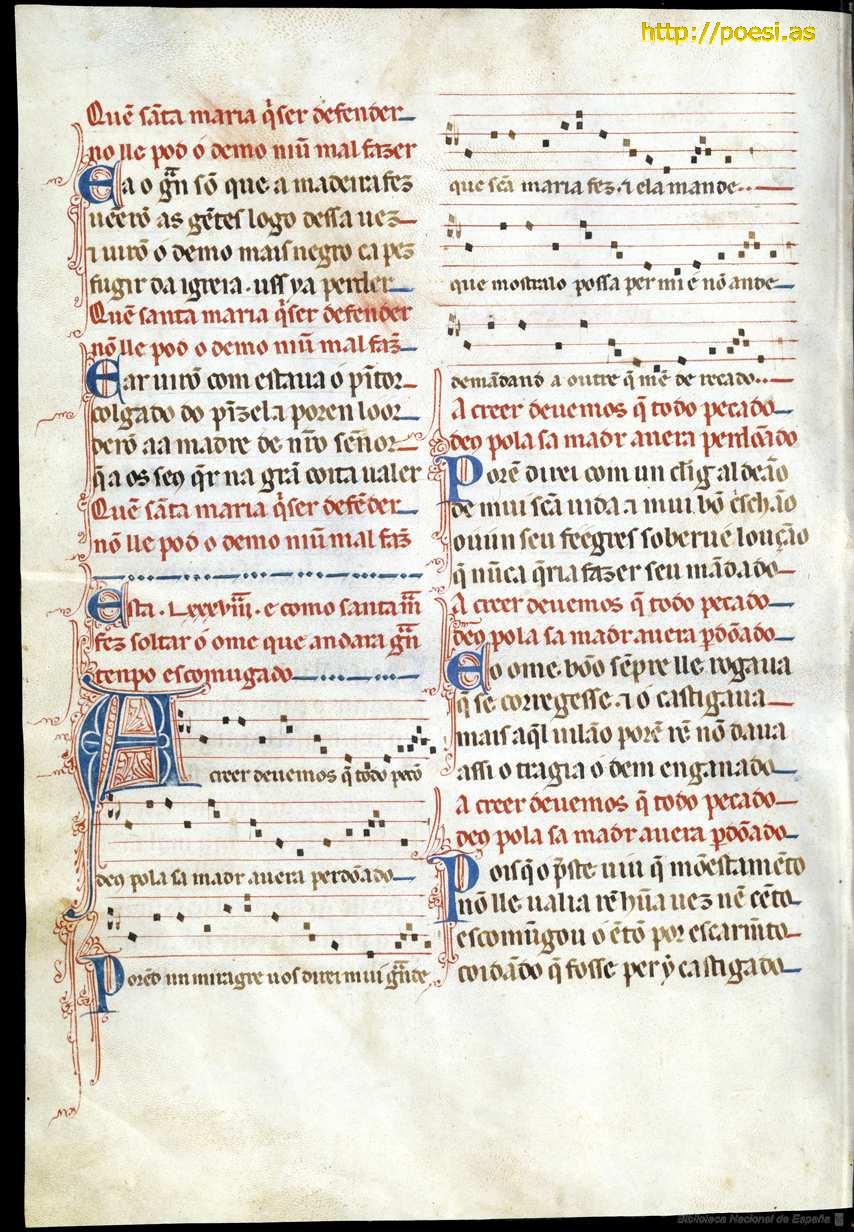 http://poesi.as
Quē sāta maria q̇ser defender
no lle pod o demo niū mal fazer
Ea o grā sō que a madeira fez
uēerō as gētes logo dessa uez
⁊ uirō o demo mais negro ca pez
fugir da igreia . uss ya perder
Quē santa maria q̇ser defender
nō lle pod o demo niū mal faz̄
E ar uirō com estaua o pītor
colgado do pīzel ⁊ poren loor
derō aa madre de nr̄o señor
q̄ a os seꝰ q̄r na grā coita ualer
Quē sāta maria q̇ser defēder
nō lle pod o demo niū mal faz̄
Esta . Lxxxviiī . e como santa m̄
fez soltar o ome que andara grā
tenpo escomūgado
A creer deuemos q̄ todo pecō
deꝰ pola sa madr auera perdōado
Porēd un miragre uos direi mui grāde
que sc̄a maria fez . ⁊ ela mande
que mostralo possa per mi ē nō ande
demādand a outre q̄ mē de recado
A creer deuemos q̄ todo pecado
deꝰ pola sa madr auera perdōado
Porē direi com un crērig aldeāo
de mui sc̄a uida ⁊ mui bō cr̄schāo
ouuun seu feēgres soberu ē louçāo
q̄ nūca q̄ria fazer seu mādado
A creer deuemos q̄ todo pecado
deꝰ pola sa madr auera p̄dōado
Eo ome bōo sēpre lle rogaua
q̄ se corregesse . ⁊ o castigaua
mais aq̄l uilāo porē rē nō daua
assi o tragia o dem enganado
A creer deuemos q̄ todo pecado
deꝰ pola sa madr auera p̄dōado
Pois q̄ o p̄ste uiu q̄ mōestamēto
nō lle ualia rē hūa uez nē cēto
escomūgou o ētō por escarm̄to
coidādo q̄ fosse per ẏ castigado
Biblioteca Nacional de España